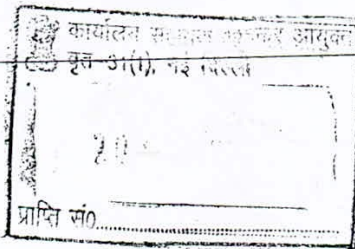 कार्यालय सहायक आयकर आयुक्त
वृत्त 31(1), नई दिल्ली
20
प्राप्ति सं०